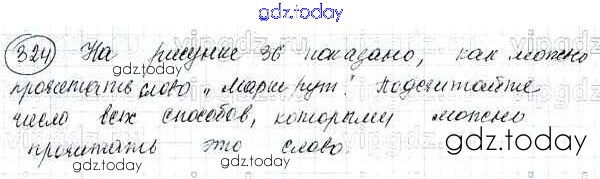 gdz.today
324) На рисунке 36 показано, как можно
gdz.today
прочитать слово „Маршрут". Подсчитайте
число всех способов, которыми можно
gdz.today
прочитать это слово.
gdz.today